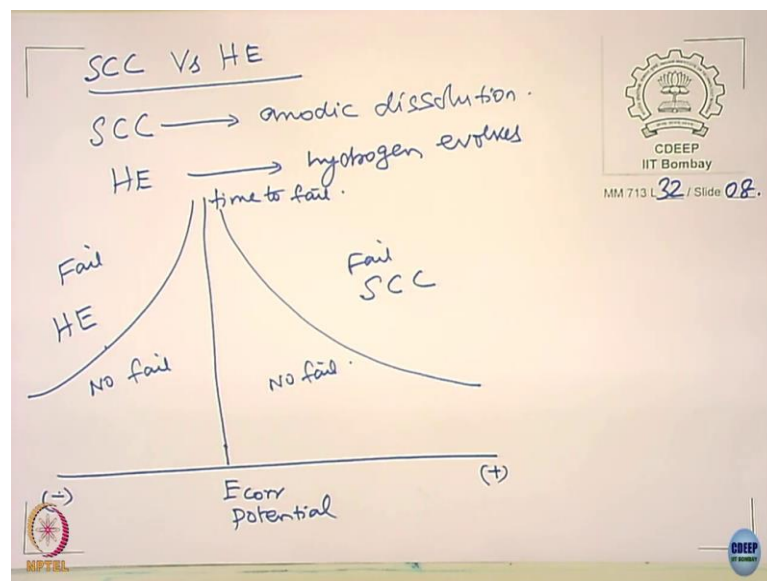 SCC Vs HE
SCC → anodic dissolution.
HE → hydrogen evolves
time to fail.
CDEEP
IIT Bombay
MM 713 L 32 / Slide 08.
Fail
HE
Fail
SCC
No fail
No fail.
(-)
(+)
Ecorr
potential
NPTEL
CDEEP
IIT BOMBAY